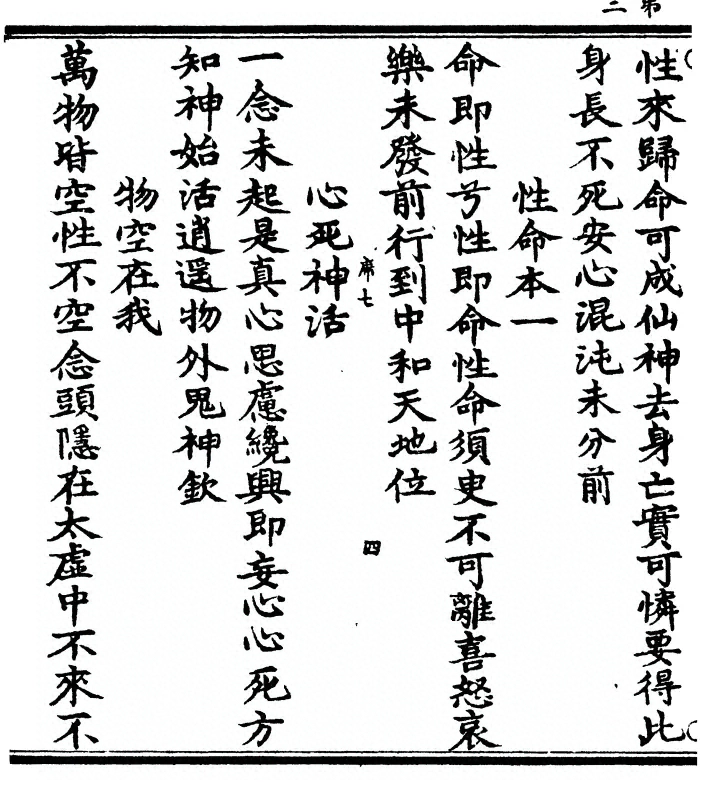 第二
性來歸命可成仙神去身亡實可憐要得此
身長不死安心混沌未分前
性命本一
命即性兮性即命性命須臾不可離喜怒哀
樂未發前行到中和天地位
席七
四
心死神活
一念未起是真心思慮纔興即妄心心死方
知神始活逍遥物外鬼神欽
物空在我
萬物皆空性不空念頭隱在太虛中不來不